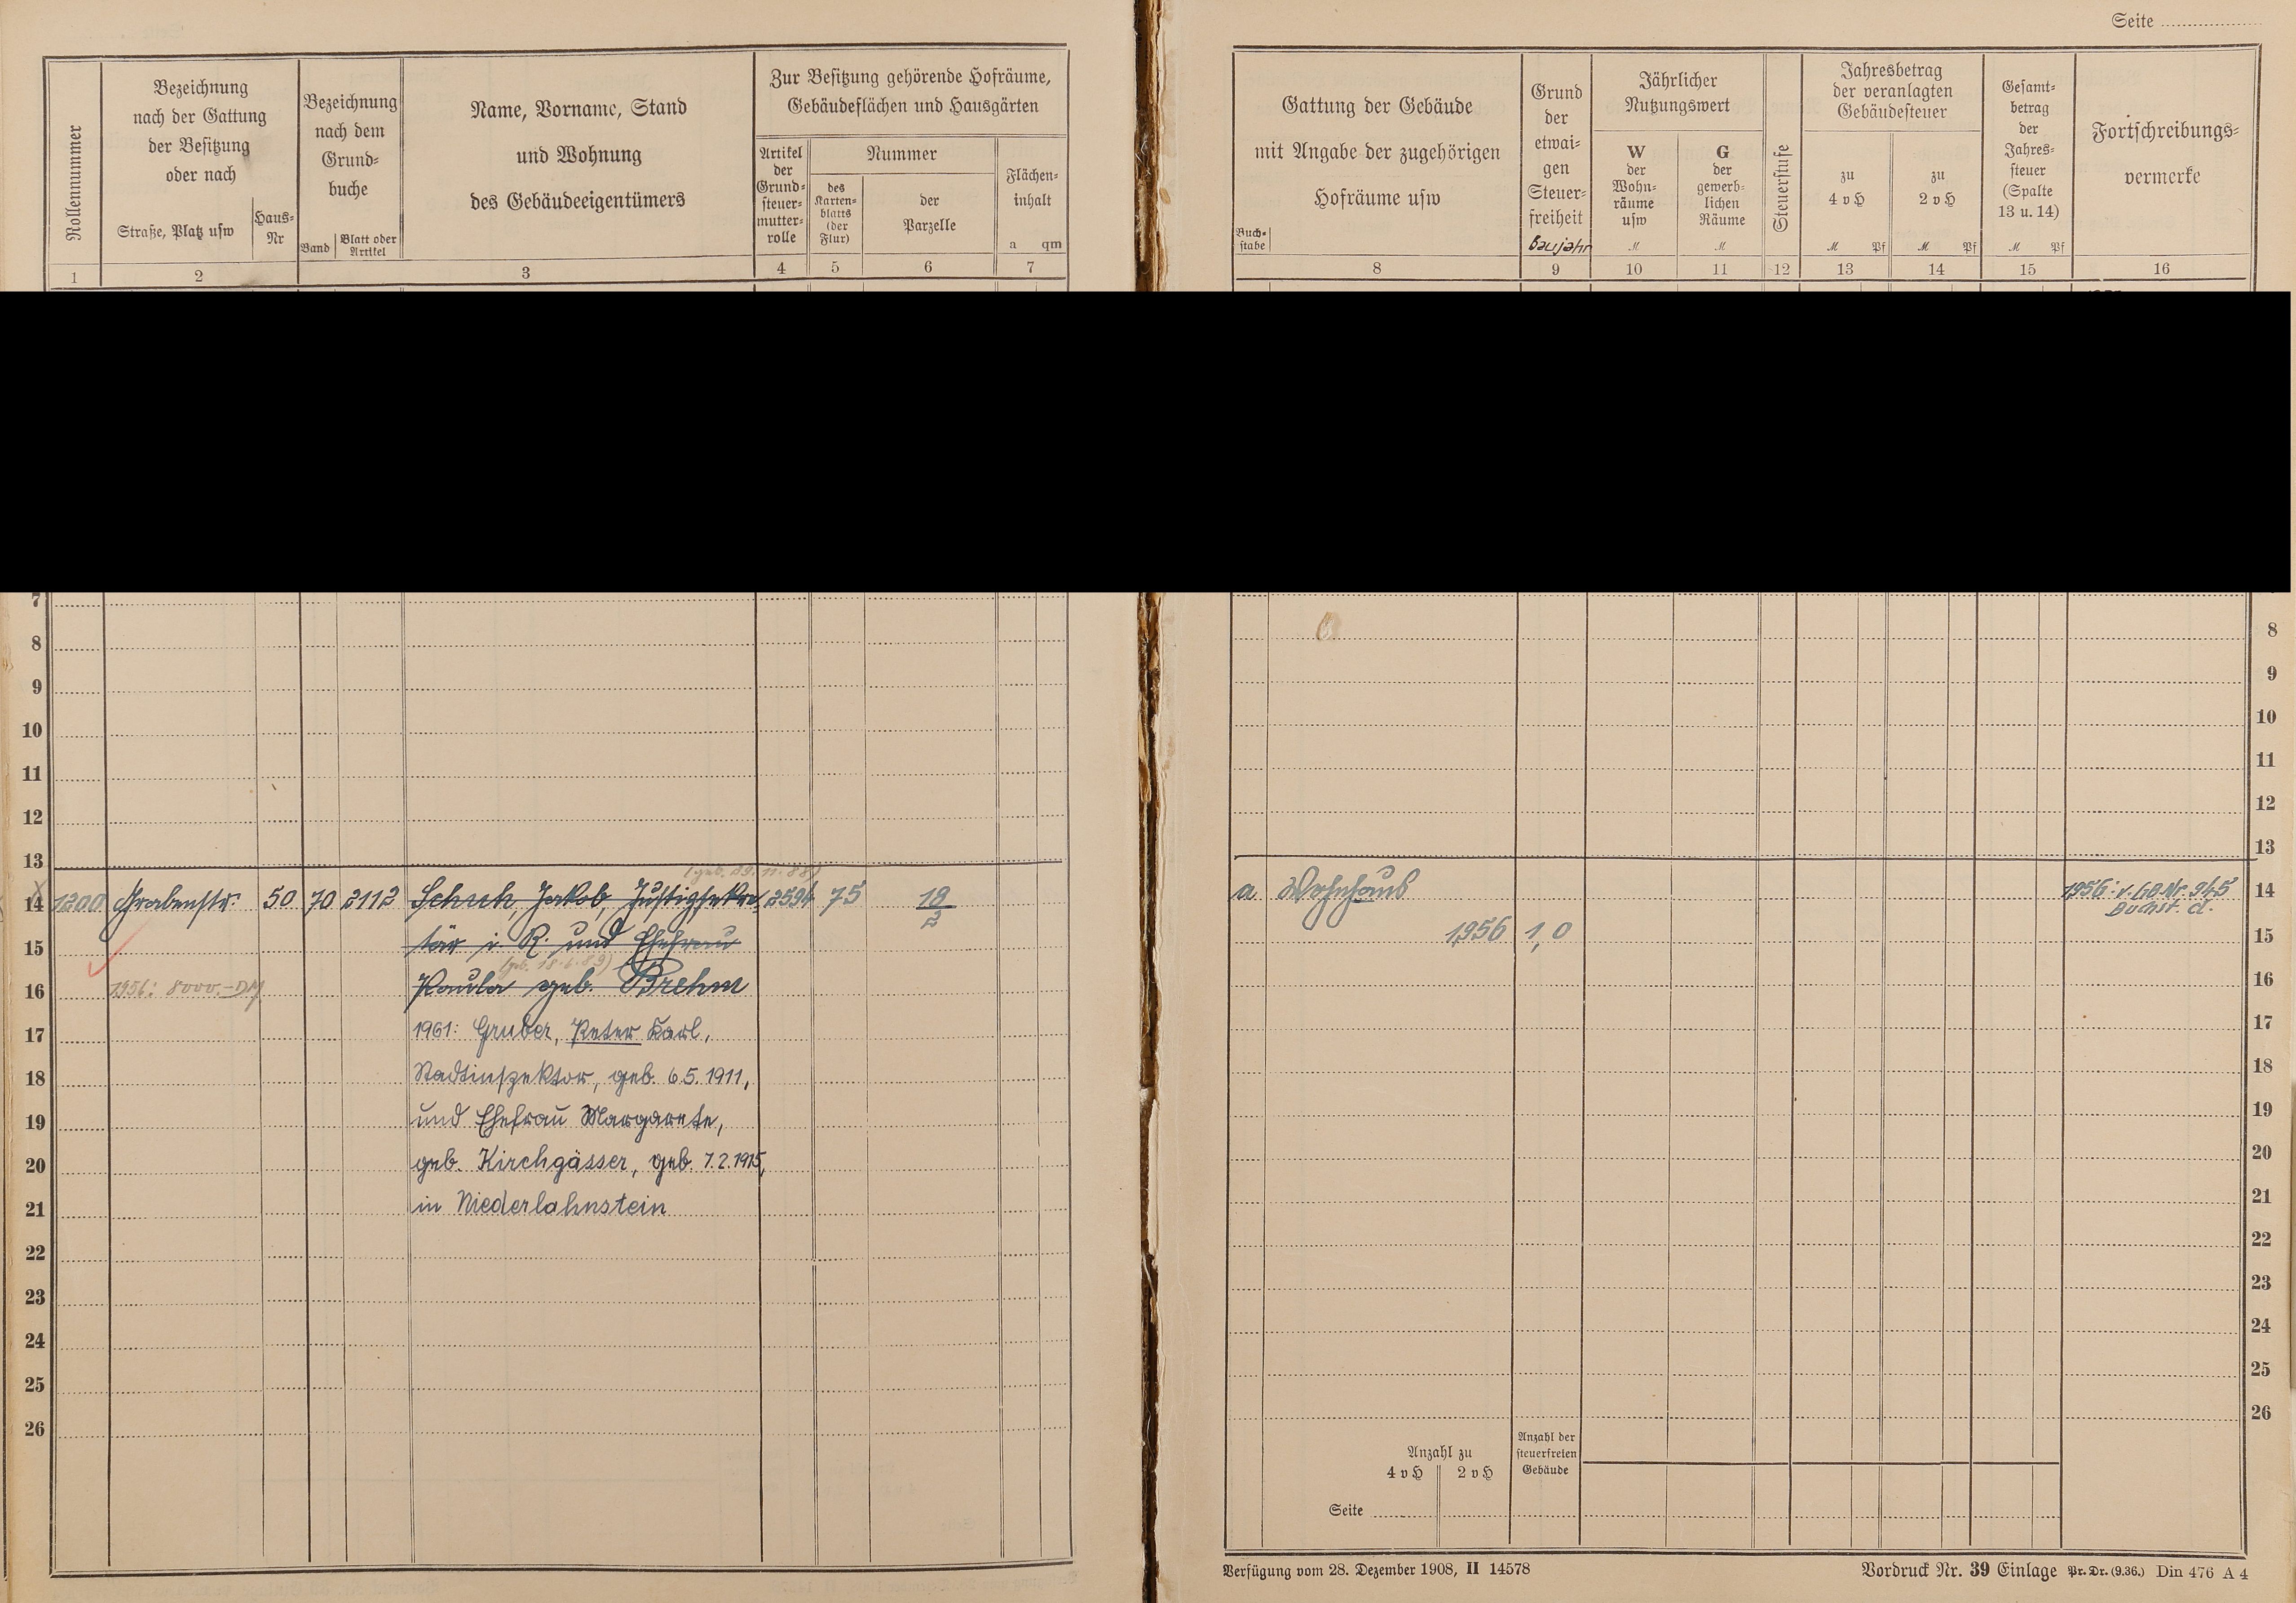 Seite
Rollennummer
Bezeichnung
nach der Gattung
der Besitzung
oder nach
Straße, Platz usw
Haus-
Nr
Bezeichnung
nach dem
Grund-
buche
Band
Blatt oder
Artikel
Name, Vorname, Stand
und Wohnung
des Gebäudeeigentümers
Zur Besitzung gehörende Hofräume,
Gebäudeflächen und Hausgärten
Artikel
der
Grund-
steuer-
mutter-
rolle
Nummer
des
Karten-
blatts
(der
Flur)
der
Parzelle
Flächen-
inhalt
a qm
1 2 3 4 5 6 7
Gattung der Gebäude
mit Angabe der zugehörigen
Hofräume usw
Buch-
stabe
Grund
der
etwai-
gen
Steuer-
freiheit
Baujahr
Jährlicher
Nutzungswert
W
der
Wohn-
räume
usw
M
G
der
gewerb-
lichen
Räume
M
Steuerstufe
Jahresbetrag
der veranlagten
Gebäudesteuer
zu
4 v H
M Pf
zu
2 v H
M Pf
Gesamt-
betrag
der
Jahres-
steuer
(Spalte
13 u. 14)
M Pf
Fortschreibungs-
vermerke
8 9 10 11 12 13 14 15 16
7
8 8
9 9
10 10
11 11
12 12
13 13
(geb. 29.11.88)
14 1200 Grabenstr. 50 70 2112 Schuh, Jakob, Justizsekre- 2594 75 18/2 a Wohnhaus 1956: v. GB Nr. 945 14
Buchst. d.
15 tär i. R. und Ehefrau 1956 1,0 15
(geb. 18.6.89)
16 1956: 8000.-DM Paula geb. Brehm 16
17 1961: Gruber, Peter Karl, 17
18 Stadtinspektor, geb. 6.5.1911, 18
19 und Ehefrau Margarete, 19
20 geb. Kirchgässer, geb. 7.2.1915, 20
21 in Niederlahnstein 21
22 22
23 23
24 24
25 25
26 26
Anzahl zu
4 v H 2 v H
Anzahl der
steuerfreien
Gebäude
Seite
Verfügung vom 28. Dezember 1908, II 14578
Vordruck Nr. 39 Einlage Pr. Dr. (9.36.) Din 476 A 4